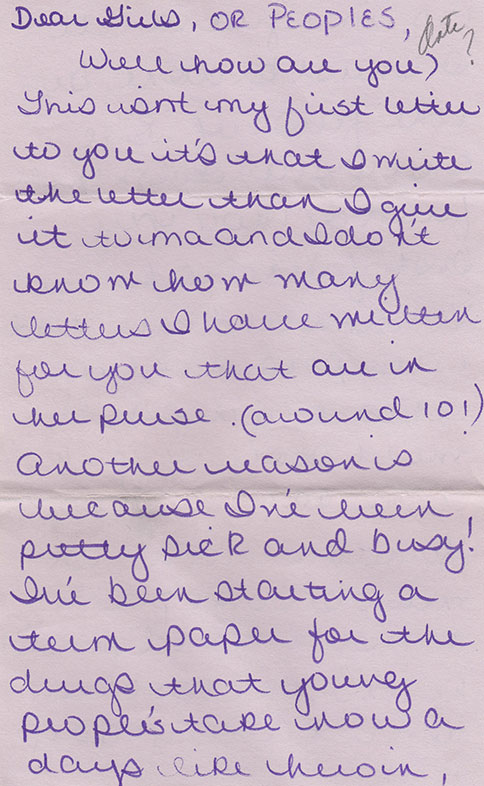 Dear Girls, OR PEOPLES, Date?
Well how are you?
This isnt my first letter
to you it's that I write
the letter than I give
it to ma and I don't
know how many
letters I have written
for you that are in
her purse. (around 101)
Another reason is
because I've been
pretty sick and busy!
I've been starting a
term paper for the
drugs that young
people's take now a
days like heroin,